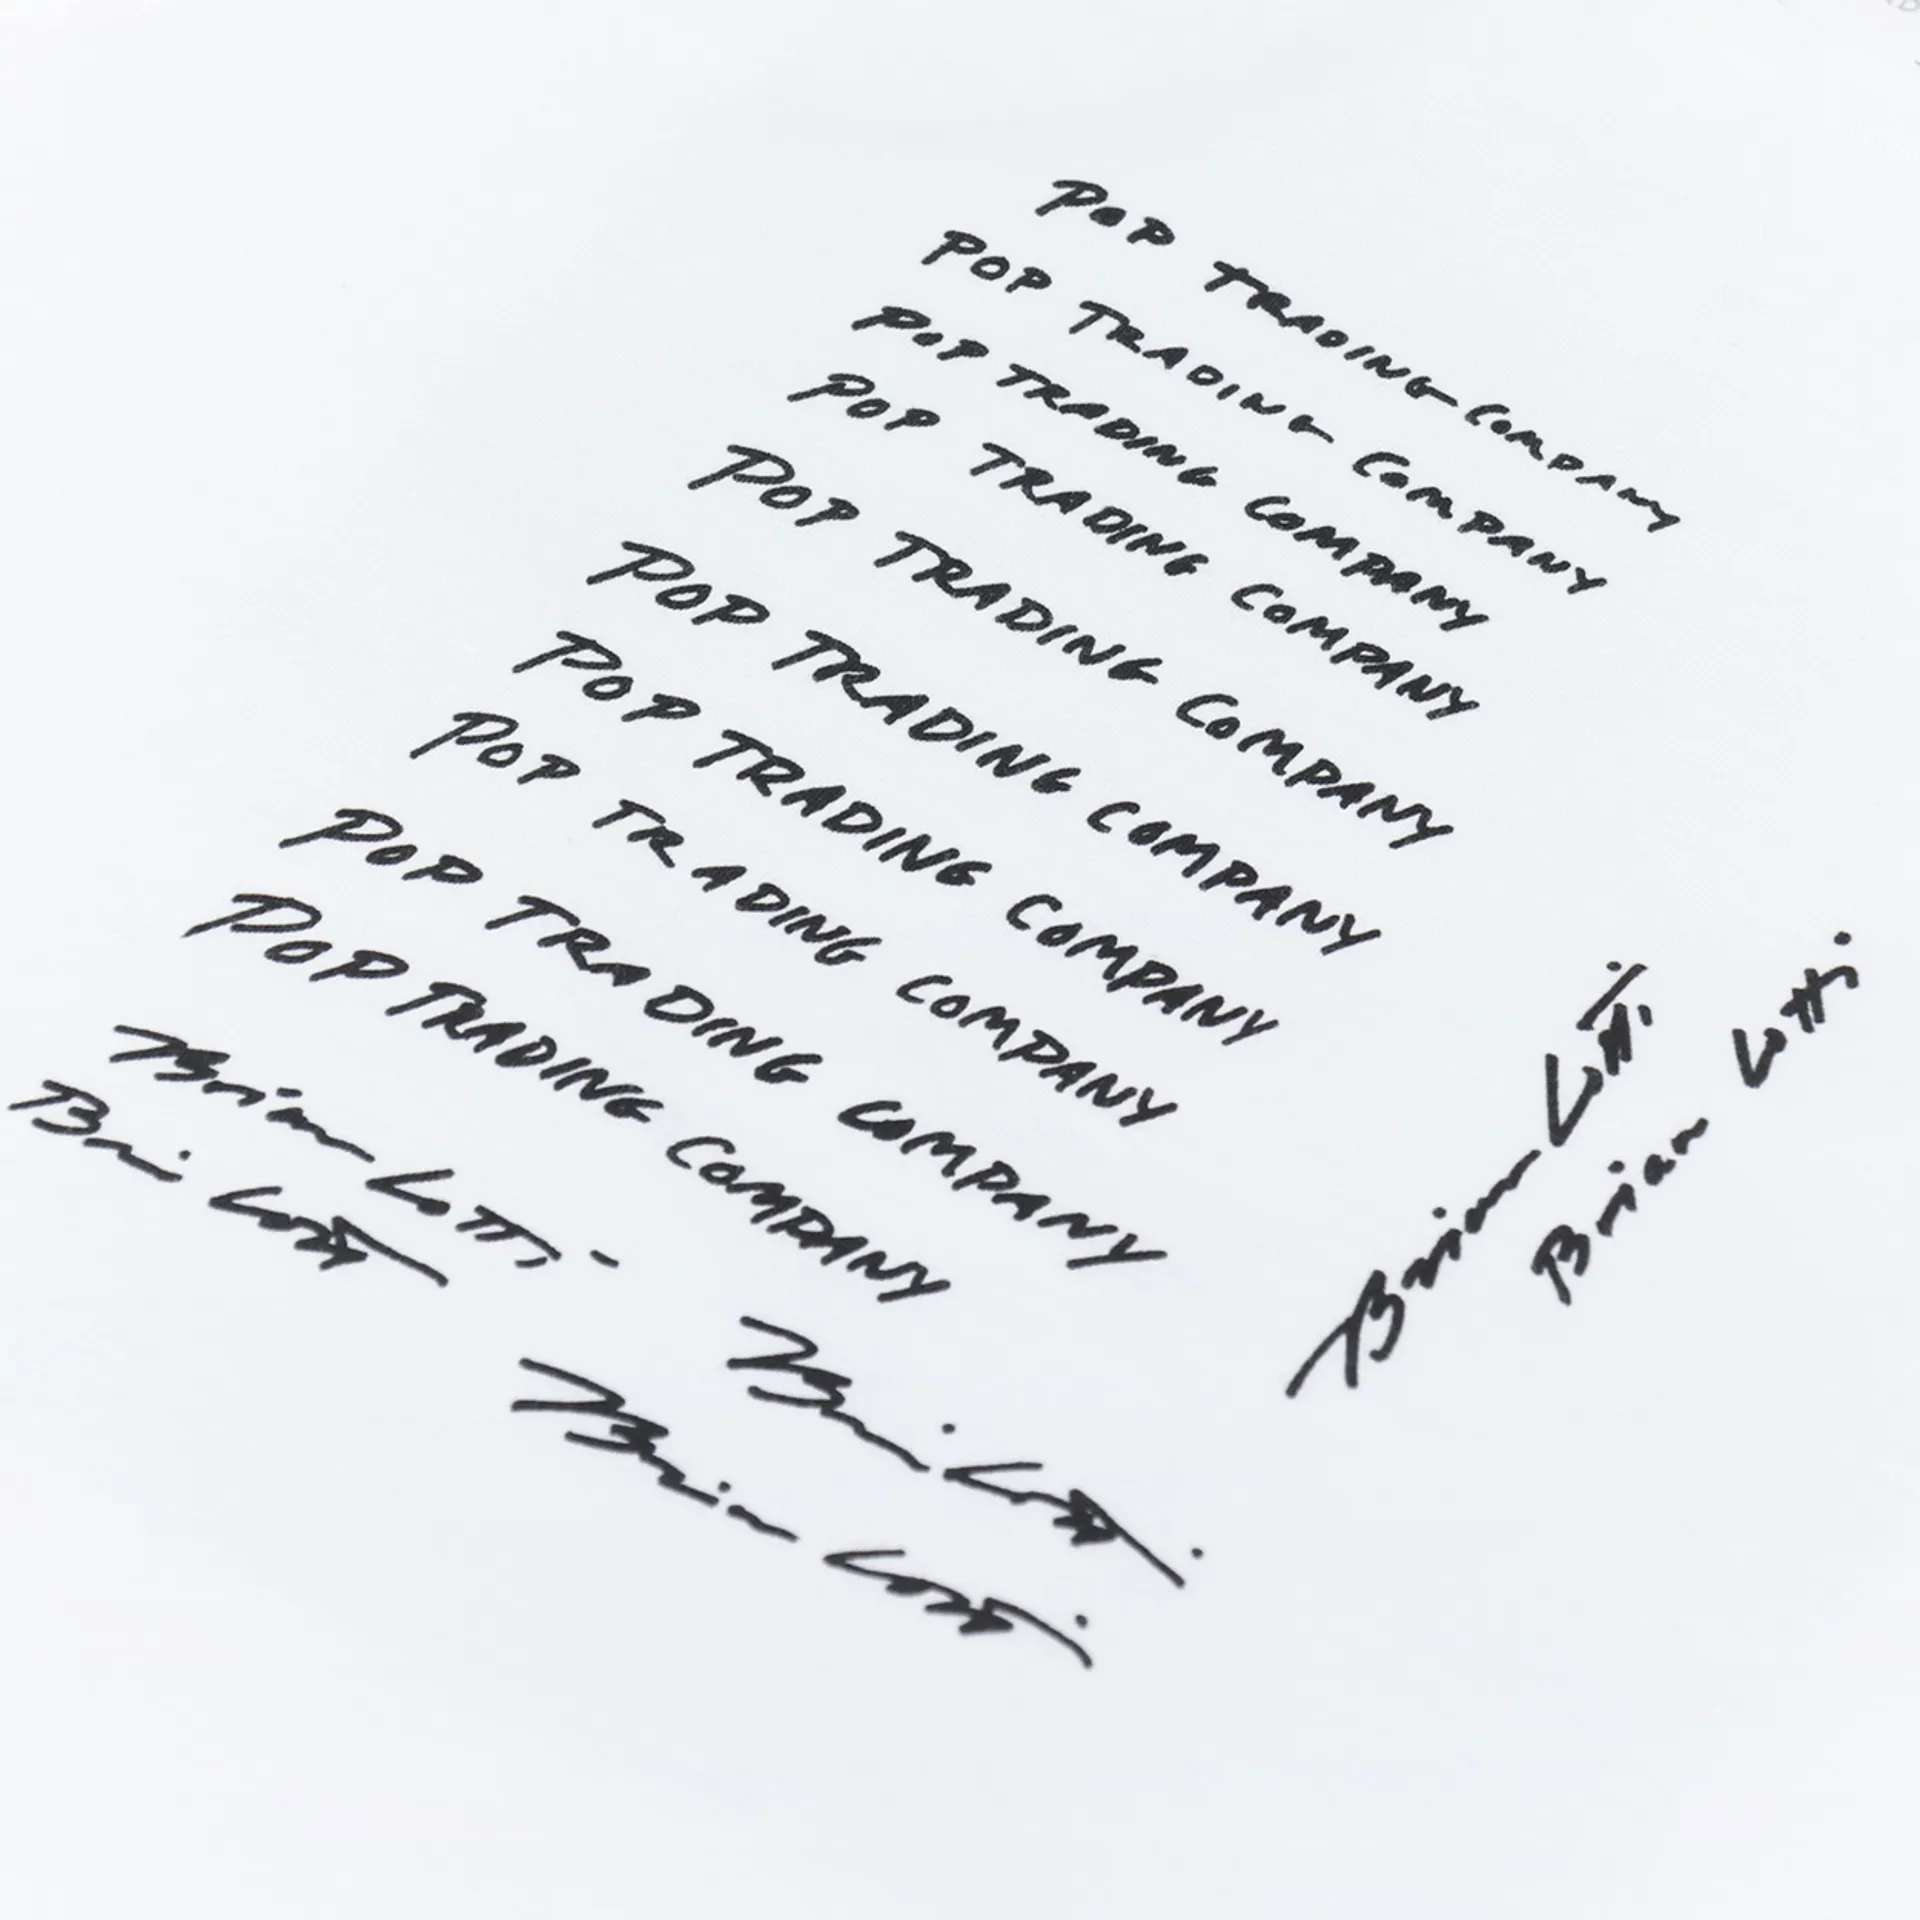 POP TRADING COMPANY
POP TRADING COMPANY
POP TRADING COMPANY
POP TRADING COMPANY
POP TRADING COMPANY
POP TRADING COMPANY
POP TRADING COMPANY
POP TRADING COMPANY
POP TRADING COMPANY
POP TRADING COMPANY
Brian Lotti
Bri Lotti
Bri Lotti
Brian Lotti
Brian Lotti
Brian Lotti